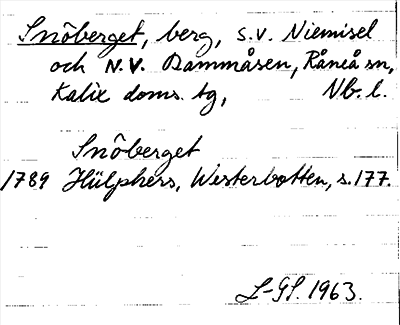 Snöberget, berg, s.v. Niemisel
och N.V. Dammåsen, Råneå sn,
Kalix doms. tg, Nb. l.
Snöberget
1789 Hülphers, Westerbotten, s. 177.
1963.